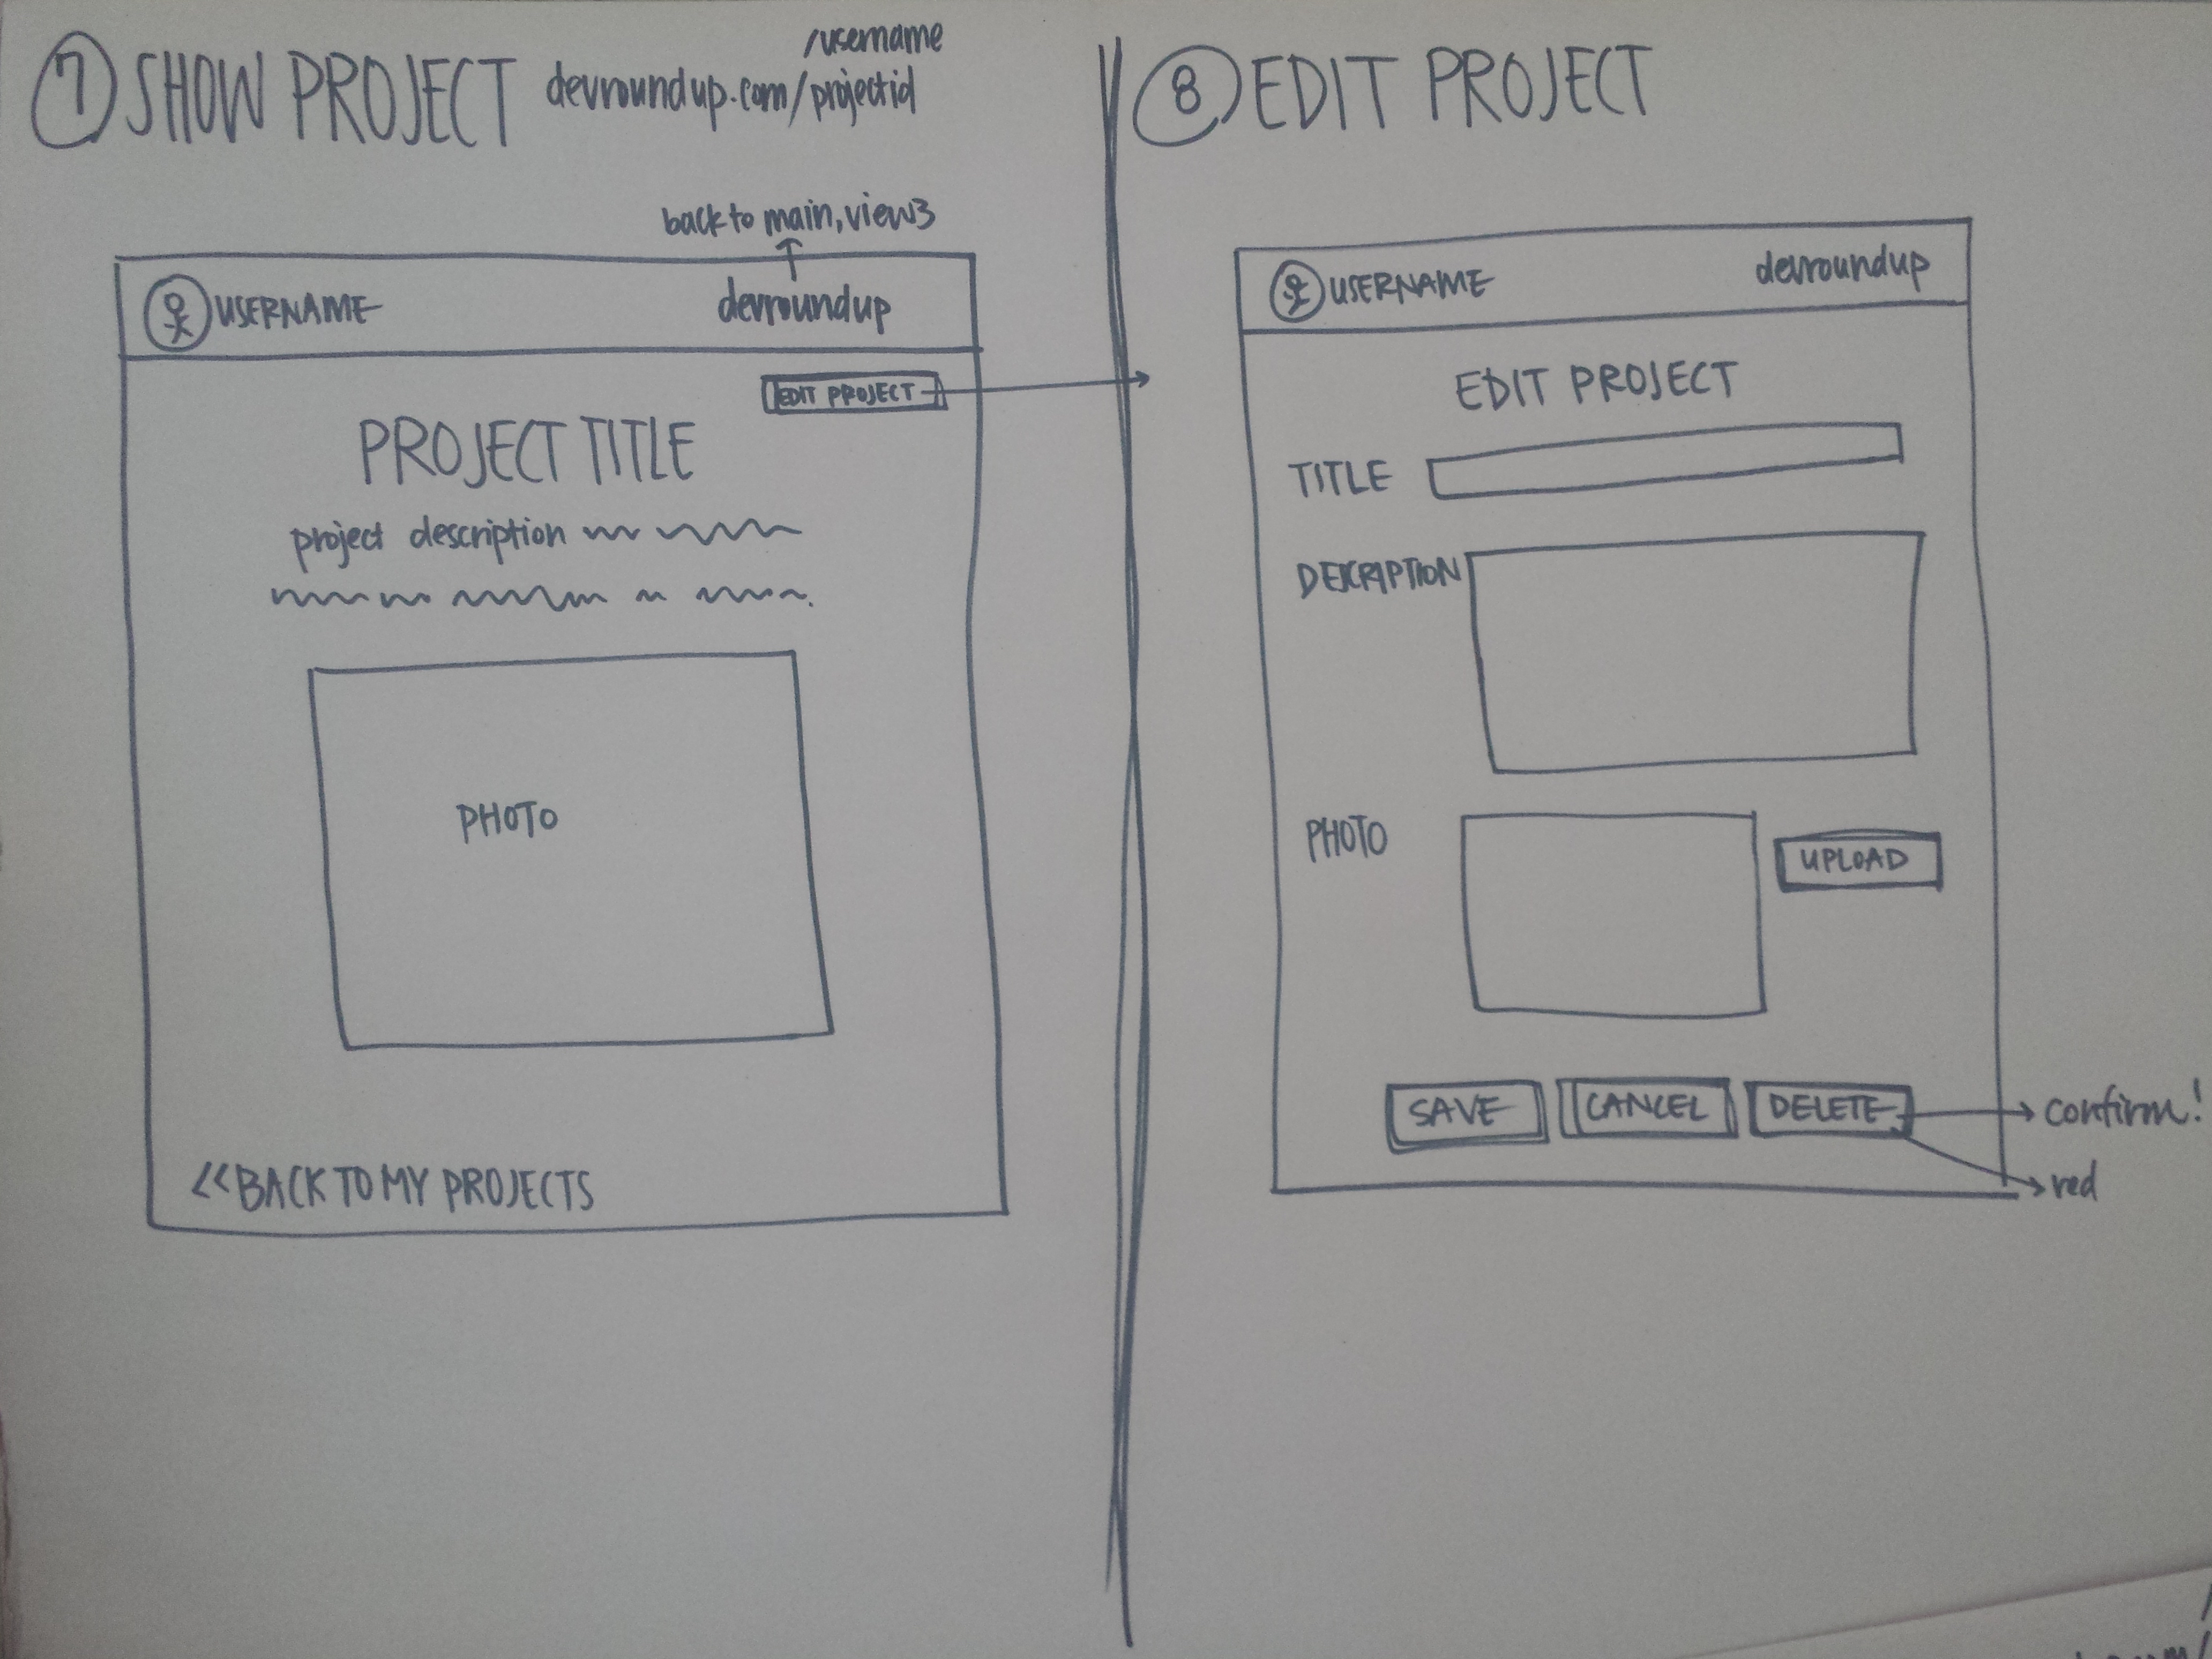 7 SHOW PROJECT devroundup.com/projectid
/username
back to main, view3
USERNAME devroundup
EDIT PROJECT
PROJECT TITLE
project description
PHOTO
<<BACK TO MY PROJECTS
8 EDIT PROJECT
USERNAME devroundup
EDIT PROJECT
TITLE
DESCRIPTION
PHOTO
UPLOAD
SAVE CANCEL DELETE confirm!
red